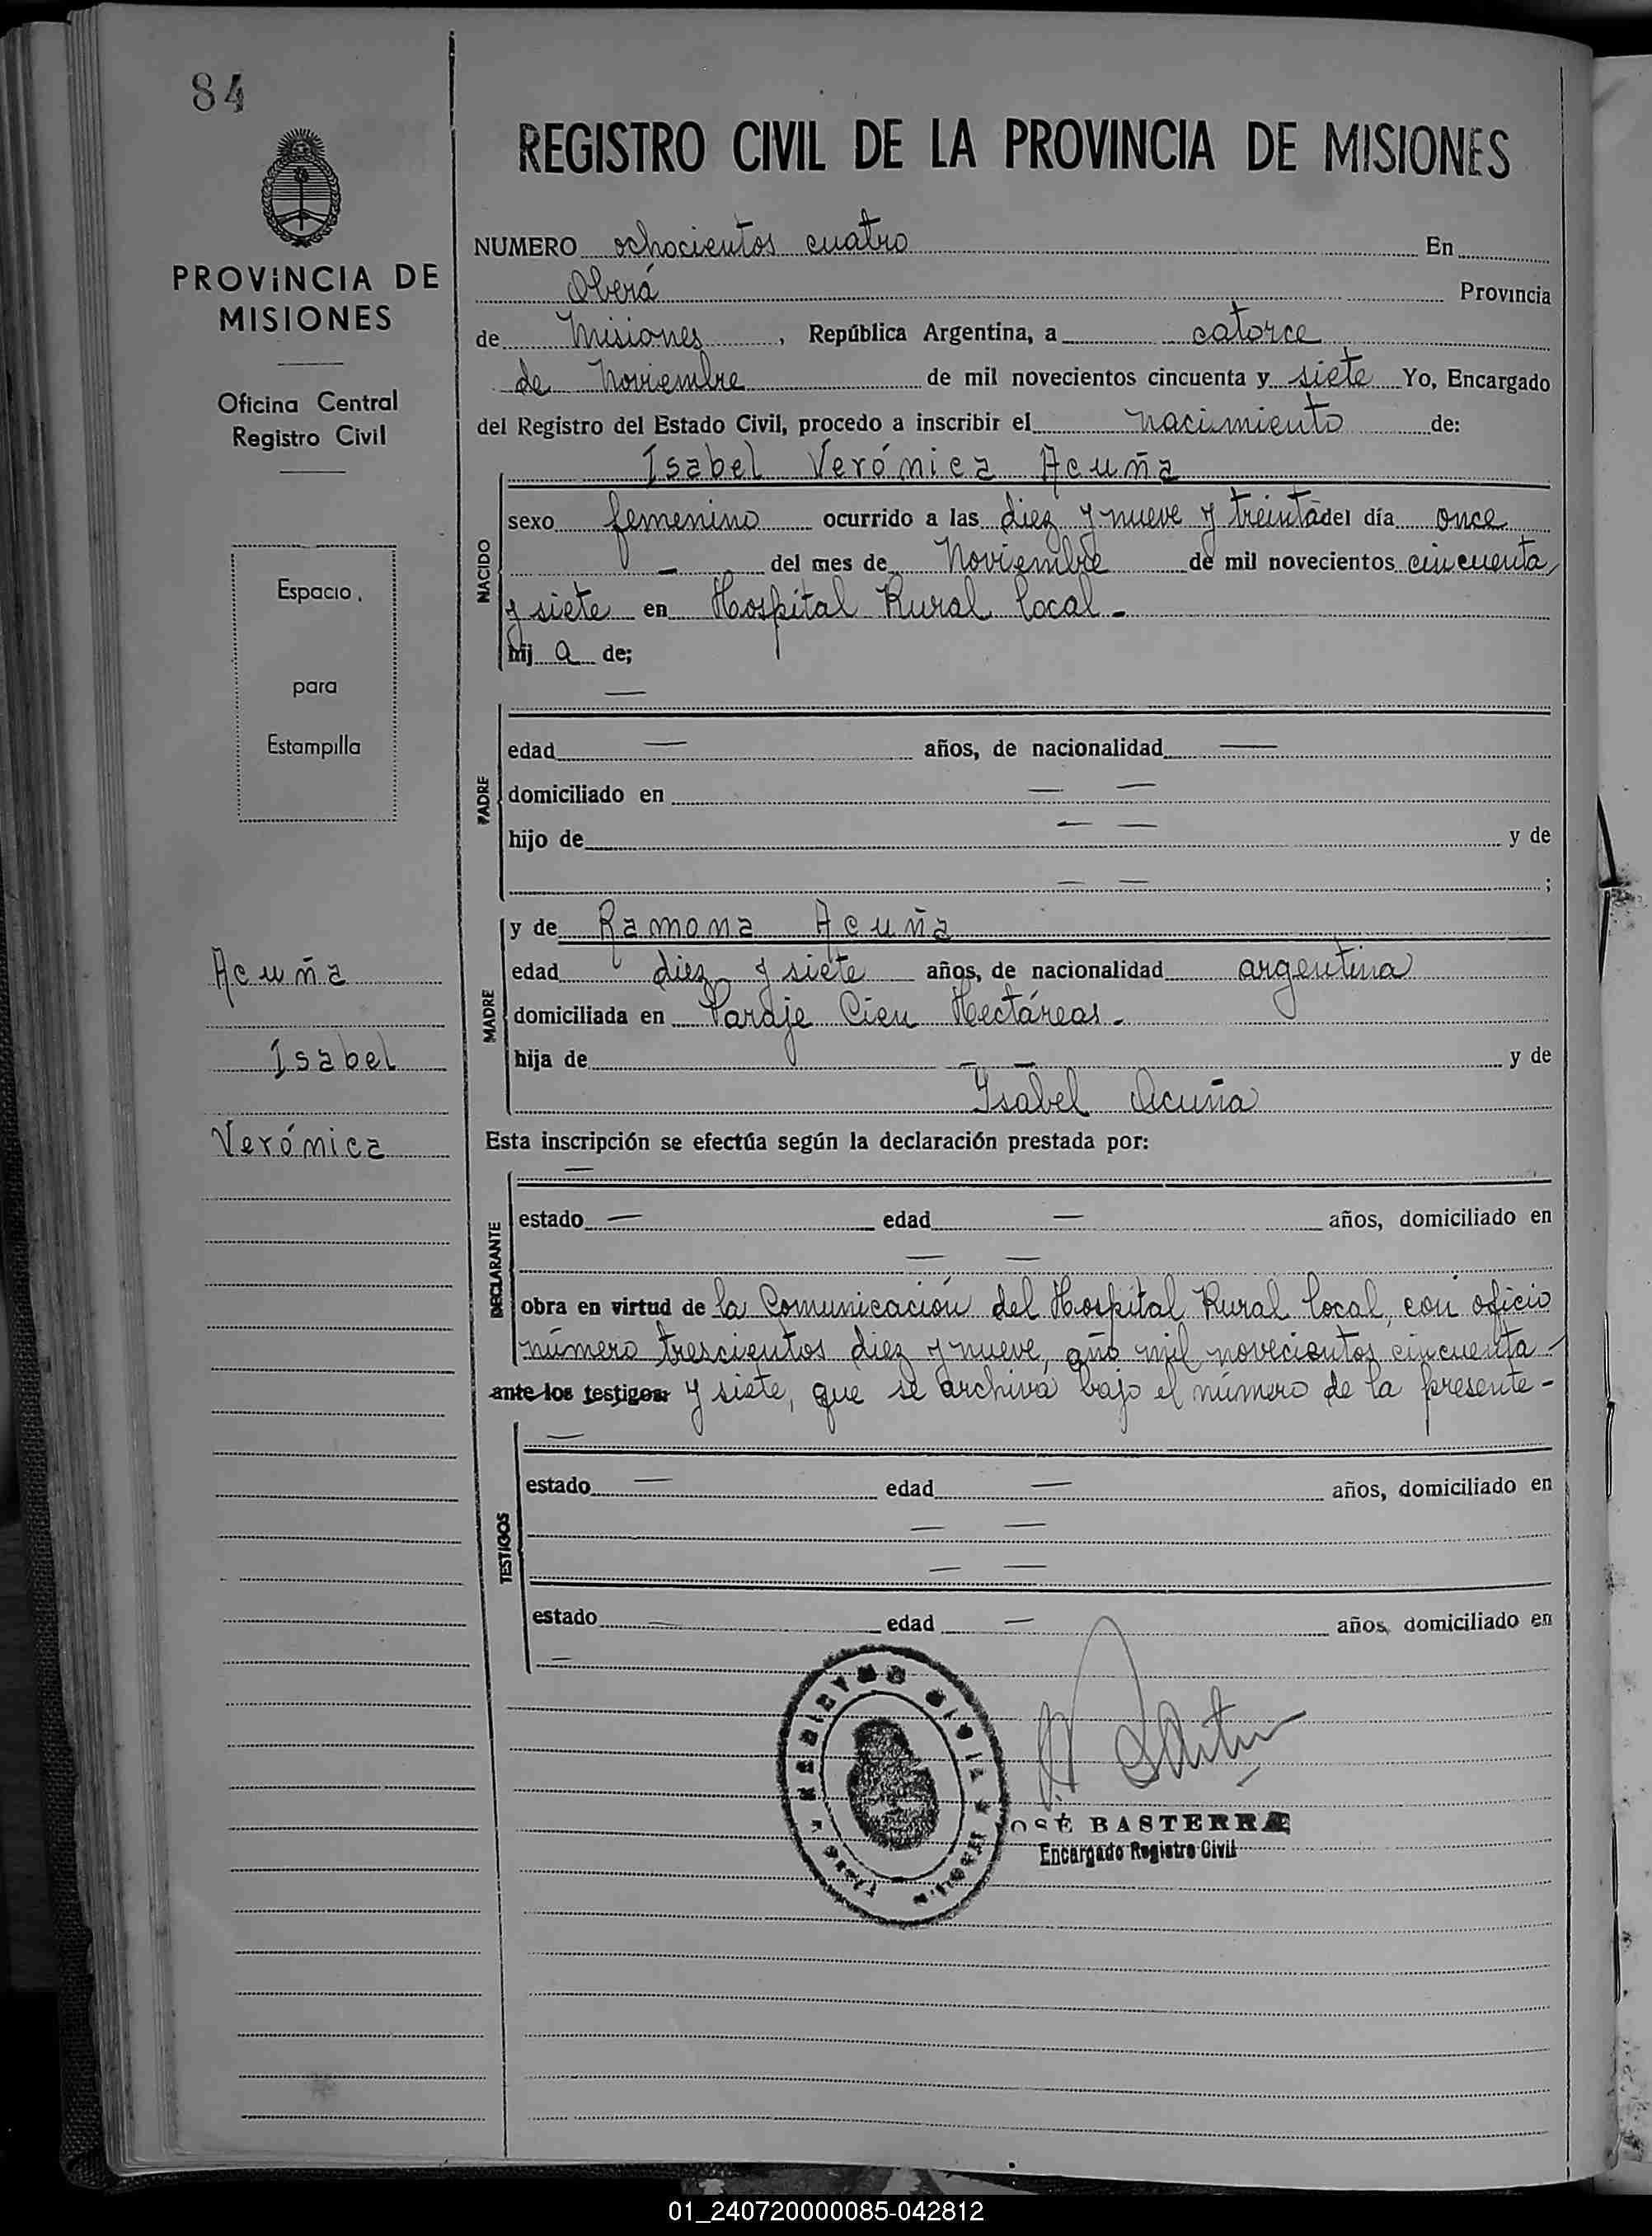 84
PROVINCIA DE
MISIONES
Oficina Central
Registro Civil
Espacio
para
Estampilla
Acuña
Isabel
Verónica
REGISTRO CIVIL DE LA PROVINCIA DE MISIONES
NUMERO ochocientos cuatro En
Oberá Provincia
de Misiones, República Argentina, a catorce
de Noviembre de mil novecientos cincuenta y siete Yo, Encargado
del Registro del Estado Civil, procedo a inscribir el nacimiento de:
Isabel Verónica Acuña
NACIDO
sexo femenino ocurrido a las diez y nueve y treinta del día once
— del mes de Noviembre de mil novecientos cincuenta
y siete en Hospital Rural Local.-
hij a de;
—
PADRE
edad — años, de nacionalidad —
domiciliado en — —
hijo de — — y de
— — ;
MADRE
y de Ramona Acuña
edad diez y siete años, de nacionalidad argentina
domiciliada en Paraje Cien Hectáreas.-
hija de — — y de
Ysabel Acuña
Esta inscripción se efectúa según la declaración prestada por:
—
DECLARANTE
estado — edad — años, domiciliado en
— —
obra en virtud de la Comunicación del Hospital Rural Local, con oficio
número trescientos diez y nueve, año mil novecientos cincuenta
ante los testigos: y siete, que se archiva bajo el número de la presente-
—
TESTIGOS
estado — edad — años, domiciliado en
— —
— —
estado edad — años, domiciliado en
—
OSÉ BASTERRA
Encargado Registro Civil
01_240720000085-042812